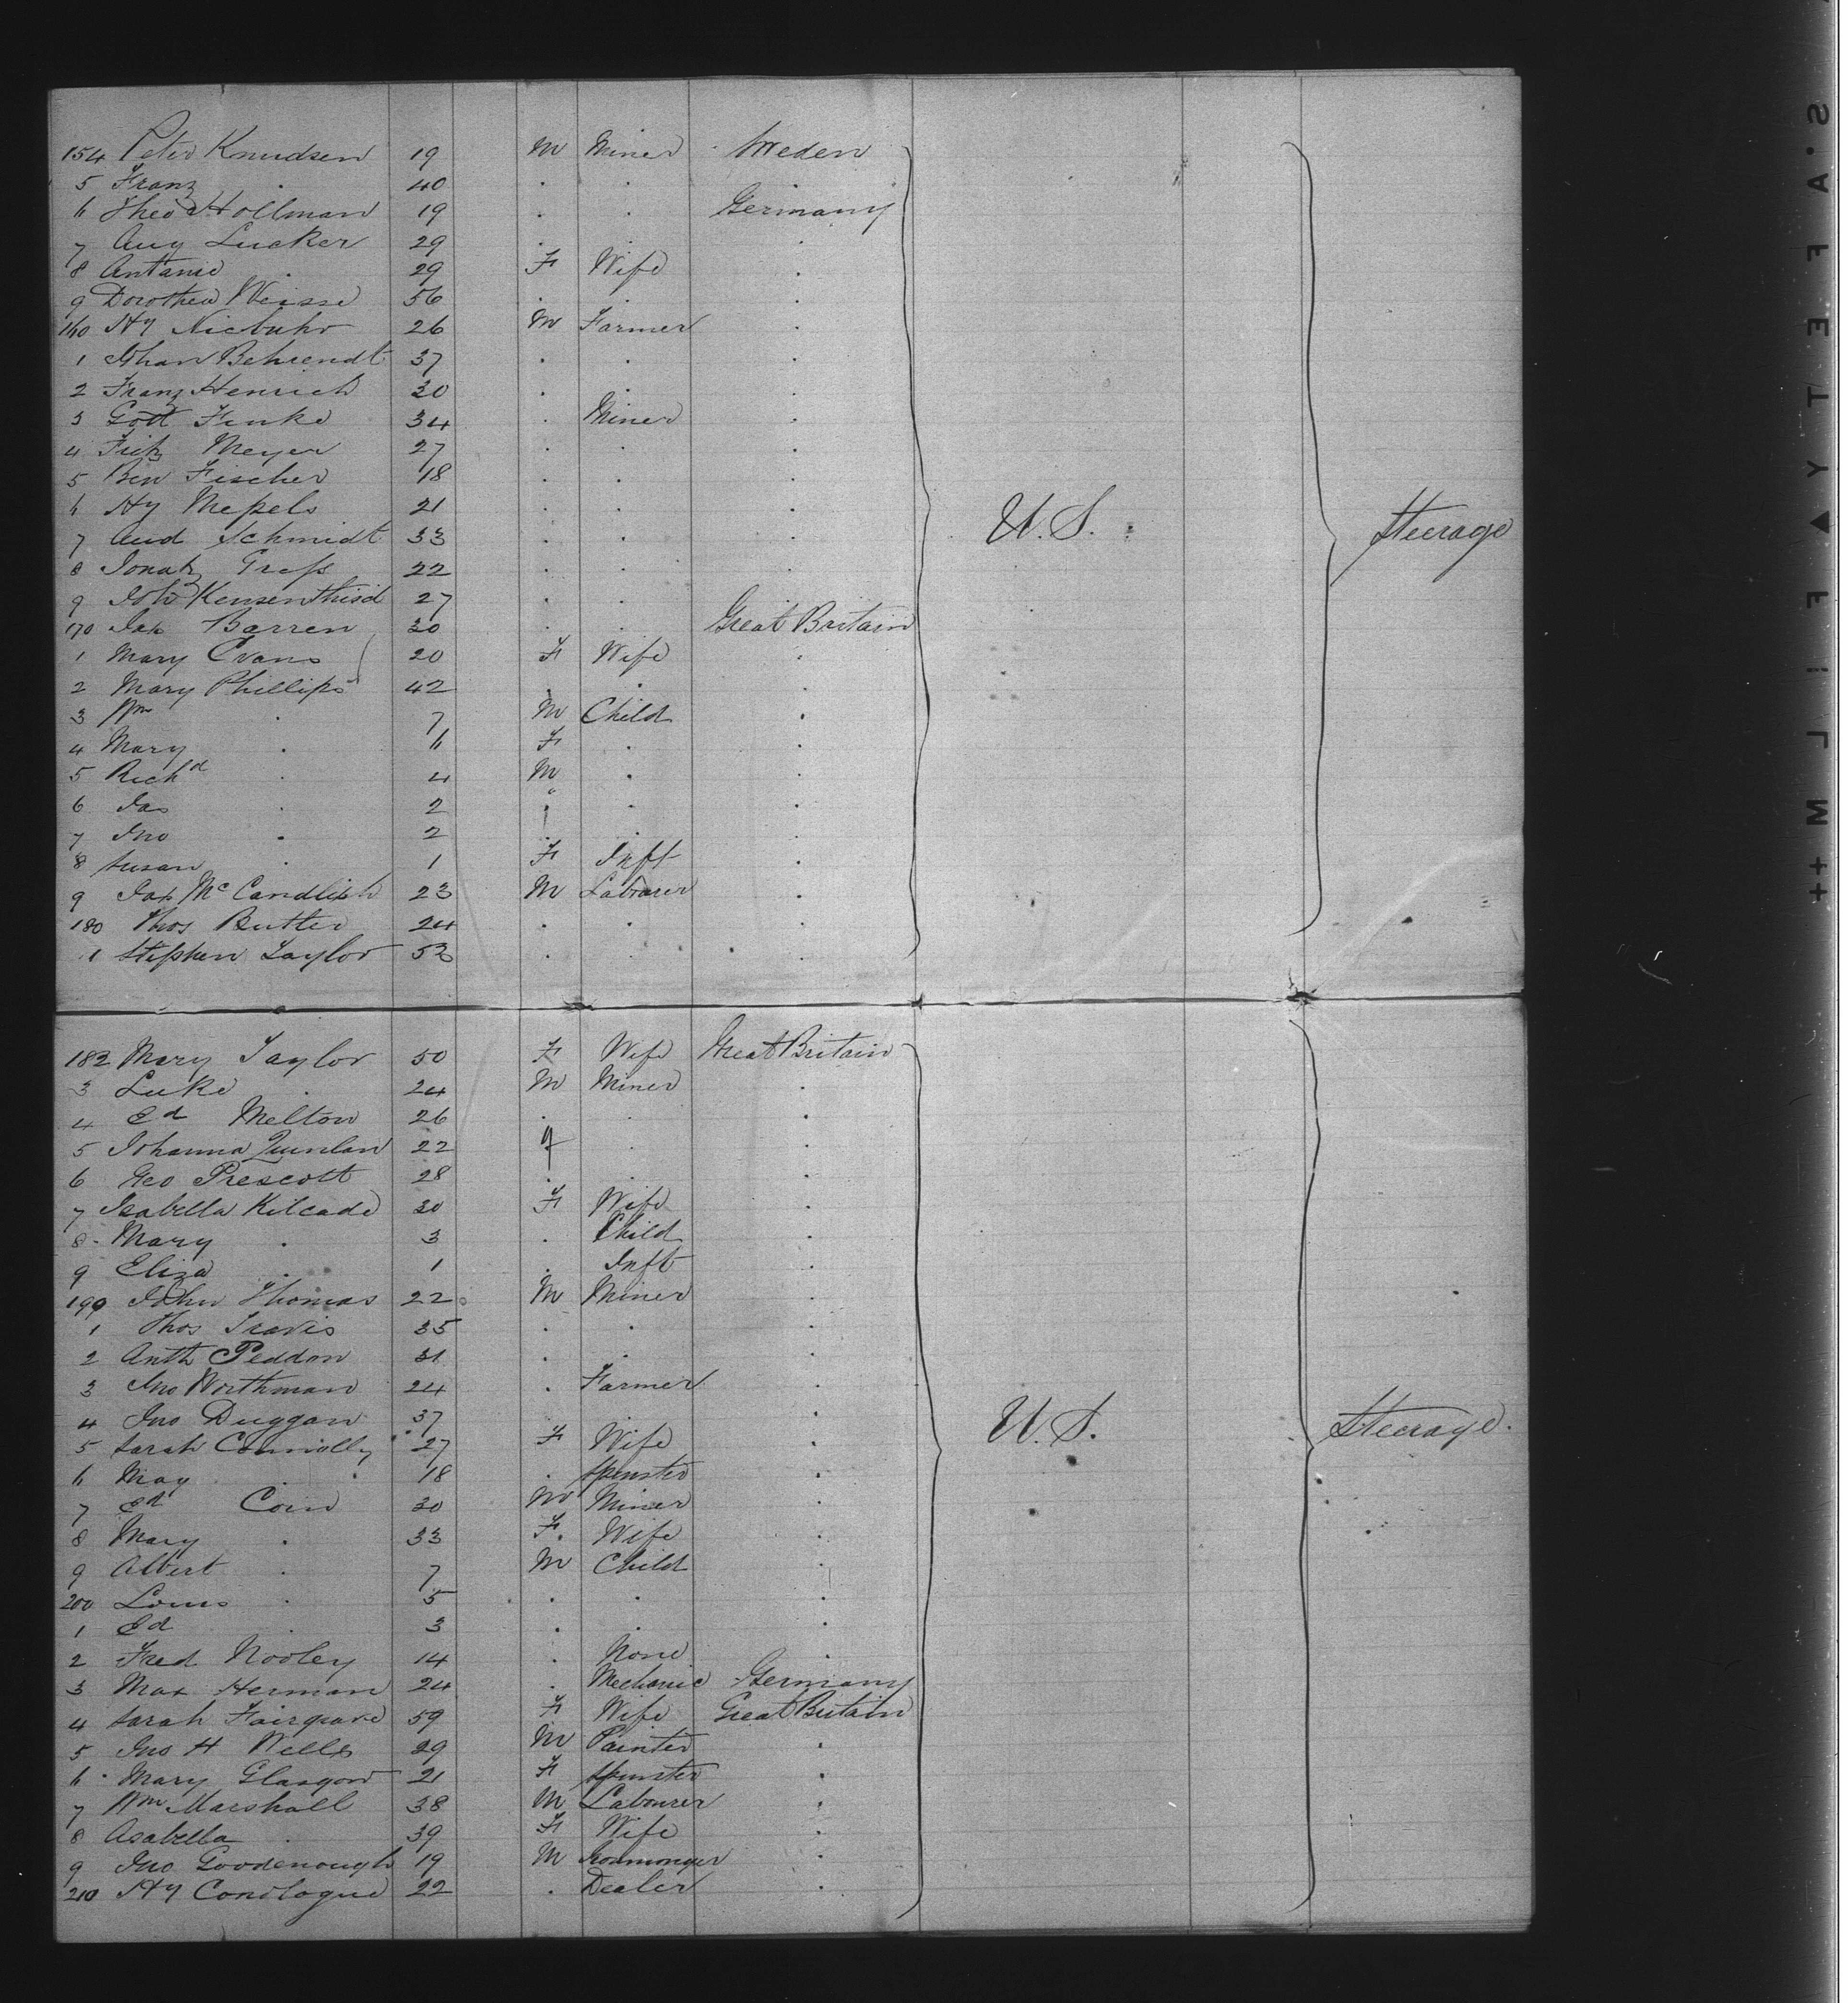 154 Peter Knudsen 19 M Miner Sweden
5 Franz . 40 . . .
6 Theo Hollman 19 . . Germany
7 Aug Lucker 29 . . .
8 Antanie . 29 F Wife .
9 Dorothea Weisse 56 . . .
160 Hy Niebuhr 26 M Farmer .
1 Johan Behrendt 37 . . .
2 Franz Henrich 30 . . .
3 Gott Finke 34 . Miner .
4 Fritz Meyer 27 . . .
5 Ben Fischer 18 . . .
6 Hy Mepels 21 . . . U.S. Steerage
7 Aud Schmidt 33 . . .
8 Jonatz Grefs 22 . . .
9 Joh 27 . .
170 Jas Barren 30 . . Great Britain
1 Mary Evans 20 F Wife .
2 Mary Phillips 42 . . .
3 Wm . 7 M Child .
4 Mary . 6 F . .
5 Richd . 4 M . .
6 Jas . 2 " . .
7 Jno . 2 . . .
8 Susan . 1 F Inft .
9 Jas McCandlish 23 M Labourer .
180 Thos Butler 24 . . .
1 Stephen Taylor 53 . . .
182 Mary Taylor 50 F Wife Great Britain
3 Luke . 24 M Miner .
4 Ed Melton 26 . . .
5 Johanna Quinlan 22 . .
6 Geo Prescott 28 . . .
7 Isabella Kilcade 30 F Wife .
8 Mary . 3 . Child .
9 Eliza . 1 . Inft .
190 John Thomas 22 M Miner .
1 Thos Travis 35 . . .
2 Anth Peddon 31 . . .
3 Jno Worthman 24 . Farmer .
4 Jno Duggan 37 . . .
5 Sarah Connolly 27 F Wife . U.S. Steerage.
6 May . 18 . Spinster .
7 Ed Coin 30 M Miner .
8 Mary . 33 F. Wife .
9 Albert . 7 M Child .
200 Louis . 5 . . .
1 Ed . 3 . . .
2 Fred Nooley 14 . None .
3 Max Herman 24 . Mechanic Germany
4 Sarah Fairgrave 59 F Wife Great Britain
5 Jno H Wells 29 M Painter .
6 Mary Glasgow 21 F Spinster .
7 Wm Marshall 38 M Labourer .
8 Asabella . 39 F Wife .
9 Jno Goodenough 19 M Ironmonger .
210 Hy Conologue 22 . Dealer .